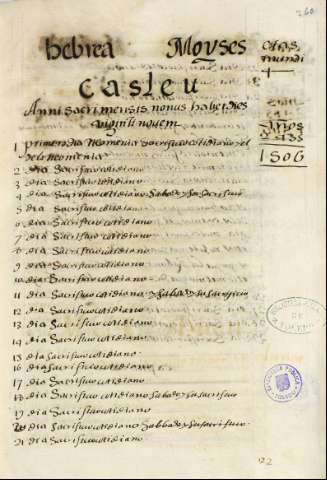 260
hebrea Moyses
etas mundi
Casleu
Anni sacri mensis nonus habet dies
viginti novem
1506
1 primero dia Neomenia sacrificio cotidiano y el
dela neomenia
2 dia Sacrificio cotidiano
3 dia Sacrificio cotidiano
4 dia Sacrificio cotidiano Sabado y su Sacrificio
5 dia Sacrificio cotidiano
6 dia Sacrificio cotidiano
7 dia Sacrificio cotidiano
8 dia Sacrificio cotidiano
9 dia Sacrificio cotidiano
10 dia Sacrificio cotidiano
11 dia Sacrificio cotidiano y Sabado y su Sacrificio
12 dia Sacrificio cotidiano
13 dia Sacrificio cotidiano
14 dia Sacrificio cotidiano
15 dia sacrificio cotidiano
16 dia sacrificio cotidiano
17 dia Sacrificio cotidiano
18 dia Sacrificio cotidiano Sabado y su sacrificio
19 dia Sacrificio cotidiano
20 dia Sacrificio cotidiano y Sabbado y su sacrificio
21 dia sacrificio cotidiano
22